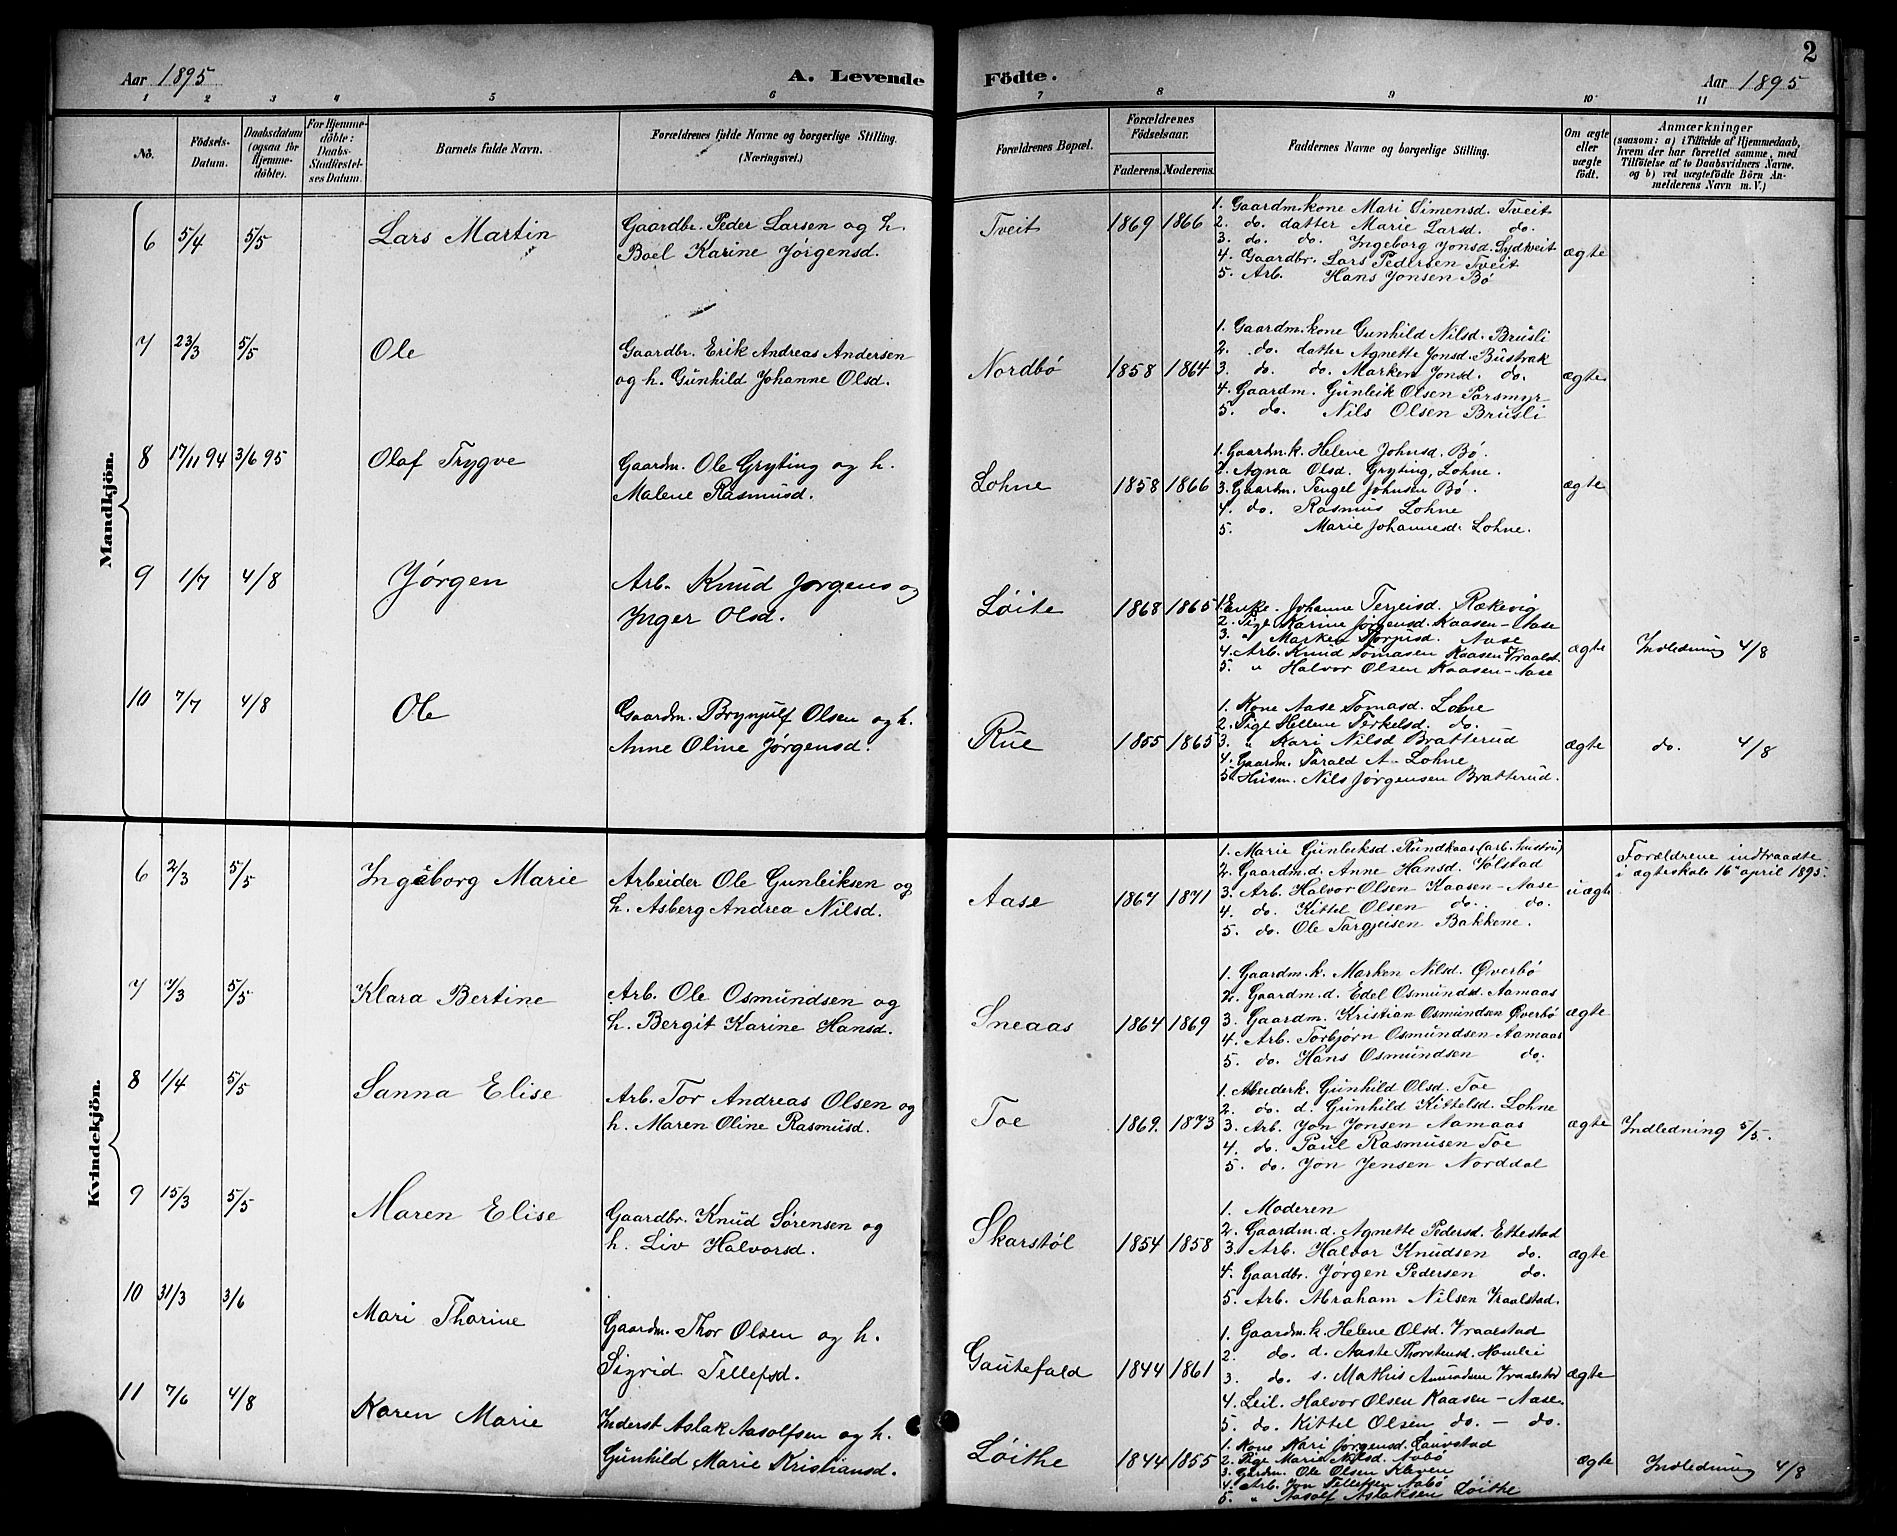 Aar 1895
A. Levende
Födte.
Aar 1895
2
1 2 3 4 5 6 7 8 9 10 11
No.
Födsels-Datum.
Daabsdatum (ogsaa for Hjemme-döbte).
For Hjemme-döbte: Daabs-Stadfæstel-ses Datum.
Barnets fulde Navn.
Forældrenes fulde Navne og borgerlige Stilling. (Næringsvei.)
Forældrenes Bopæl.
Forældrenes Födselsaar.
Faderens. Moderens.
Faddernes Navne og borgerlige Stilling.
Om ægte eller uægte födt.
Anmærkninger
(saasom: a) i Tilfælde af Hjemmedaab,
hvem der har forrettet samme, med
Tilföielse af to Daabsvidners Navne.
og b) ved uægtefödte Börn An-
melderens Navn m. V.)
Mandkjön.
6 5/4 5/5 Lars Martin
Gaardbr. Peder Larsen og h.
Boel Karine Jørgensd.
Tveit 1869 1866
1. Gaardm.kone Mari Simensd. Tveit
2. do. datter Marie Larsd. do.
3. do. do. Ingeborg Jonsd. Sydtveit
4. Gaardbr. Lars Pedersen Tveit
5. Arb. Hans Jonsen Bø
ægte
7 23/3 5/5 Ole
Gaardbr. Erik Andreas Andersen
og h. Gunhild Johanne Olsd.
Nordbø 1858 1864
1. Gaardm.kone Gunhild Nilsd. Brusli
2. do. datter Agnette Jonsd. Bustrak
3. do. do. Marken Jonsd. do.
4. Gaardm. Gunleik Olsen Porsmyr
5. do. Nils Olsen Brusli
ægte
8 17/11 94 3/6 95 Olaf Trygve
Gaardm. Ole Gryting og h.
Malene Rasmusd.
Lohne 1858 1866
1. Gaardm.k. Helene Johnsd. Bø.
2. Agna Olsd. Gryting, Lohne.
3. Gaardm. Tengel Johnsen Bø.
4. do. Rasmus Lohne
5. Marie Johannesd. Lohne.
ægte
9 1/7 4/8 Jørgen
Arb. Knud Jørgens og
Inger Olsd.
Løite 1868 1865
1. Enke. Johanne Terjeisd. Rækevig
2. Pige Karine Jørgensd. Kaasen-Aase
3. " Marken Aase
4. Arb. Knud Tomasen Kaasen Vraalst.
5. " Halvor Olsen Kaasen-Aase
ægte
Indledning 4/8
10 7/7 4/8 Ole
Gaardm. Brynjulf Olsen og h.
Anne Oline Jørgensd.
Rue 1855 1865
1. Kone Aase Tomasd. Lohne
2. Pige Hellene Terkelsd. do.
3. " Kari Nilsd Bratterud
4. Gaardm. Tarald A. Lohne
5. Husm. Nils Jørgensen Bratterud.
ægte
do. 4/8
Kvindekjön.
6 2/3 5/5 Ingeborg Marie
Arbeider Ole Gunleiksen og
h. Asberg Andrea Nilsd.
Aase 1867 1871
1. Marie Gunleiksd. Rundkaas (arb. hustru)
2. Gaardm.d. Anne Hansd. Vølstad
3. Arb. Halvor Olsen Kaasen-Aase
4. do. Kittel Olsen do. do.
5. do. Ole Targjeisen Bakkene.
uægte
Forældrene indtraadte
i ægteskab 16de april 1895.
7 7/3 5/5 Klara Bertine
Arb. Ole Osmundsen og
h. Bergit Karine Hansd.
Sneaas 1864 1869
1. Gaardm.k. Marken Nilsd. Øverbø
2. Gaardm.d. Edel Osmundsd. Aamaas
3. Gaardm. Kristian Osmundsen Øverbø
4. Arb. Torbjørn Osmundsen Aamaas
5. do. Hans Osmundsen do.
ægte
8 1/4 5/5 Sanna Elise
Arb. Tor Andreas Olsen og
h. Maren Oline Rasmusd.
Toe 1869. 1873
1. Arbeiderk. Gunhild Olsd. Toe
2. do. d. Gunhild Kittelsd. Lohne
3. Arb. Jon Jonsen Aamaas
4. do. Paul Rasmusen Toe
5. do. Jon Jensen Norddal
ægte
Indledning 5/5.
9 15/3 5/5 Maren Elise
Gaardbr. Knud Sørensen og
h. Liv Halvorsd.
Skarstøl 1854 1858
1. Moderen
2. Gaardm.d. Agnette Pedersd. Ettestad
3. Arb. Halvor Knudsen do.
4. Gaardbr. Jørgen Pedersen do.
5. Arb. Abraham Nilsen Vraalstad.
ægte
10 31/3 3/6 Mari Thorine
Gaardm. Thor Olsen og h.
Sigrid Tellefsd.
Gautefald 1844 1861
1. Gaardm.k. Helene Olsd. Vraalstad
2. do. d. Aaste Thorstensd. Homlei
3. do s. Mathis Amundsen Vraalstad
4. Leil. Halvor Olsen Kaasen-Aase.
5. do. Kittel Olsen do. - do.
ægte
11 7/6 4/8 Karen Marie
Inderst Aslak Aasolfsen og h.
Gunhild Marie Kristiansd.
Løithe 1844 1855
1. Kone Kari Jørgensd. Laurstad
2. Pige Marie Nilsd. Aabø
3. Gaardm. Ole Olsen Kleven
4. Arb. Jon Tellefsen Aabø
5. " Aasolf Aslaksen Løithe
ægte
Indledning 4/8